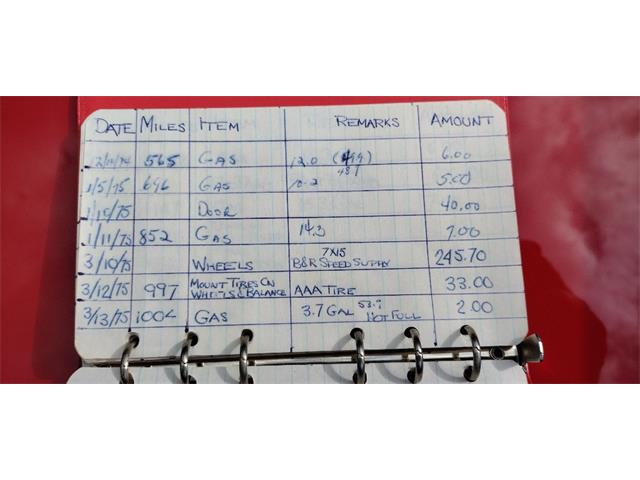 DATE MILES ITEM REMARKS AMOUNT
565 GAS 12.0 6.00
1/5/75 696 GAS 10.2 5.00
DOOR 40.00
1/11/75 852 GAS 14.3 7.00
3/10/75 WHEELS 7X15 B&R SPEED SUPPLY 245.70
3/12/75 997 MOUNT TIRES ON WHEELS & BALANCE AAA TIRE 33.00
3/13/75 1004 GAS 3.7 GAL 53.9 NOT FULL 2.00